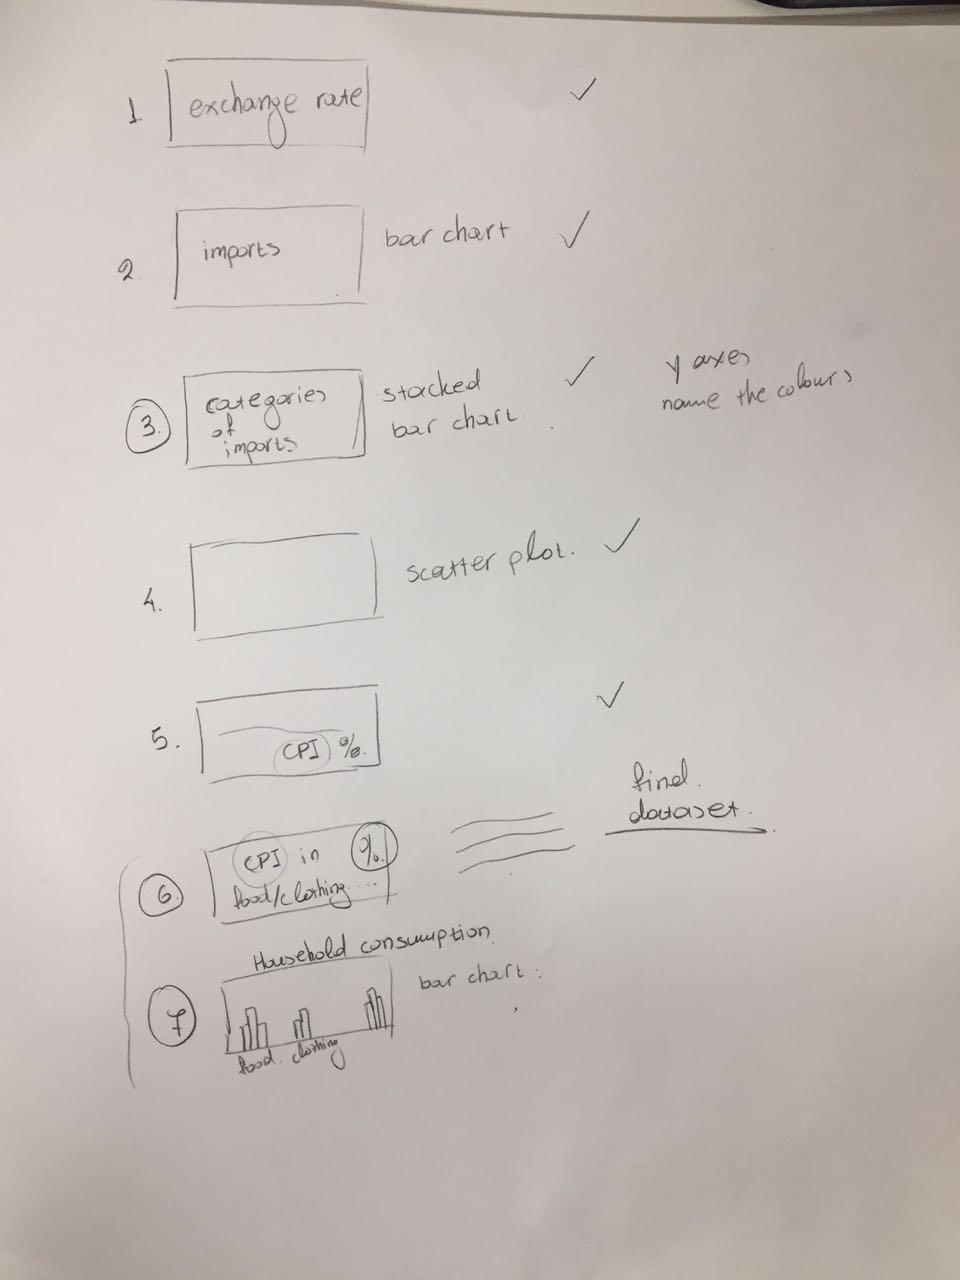 1. exchange rate ✓
2. imports bar chart ✓
3. categories of imports stacked bar chart ✓ y axes name the colours
4. scatter plot. ✓
5. CPI %. ✓
find. dataset.
6. CPI in %. food/clothing....
Household consumption
7 bar chart:
food. clothing